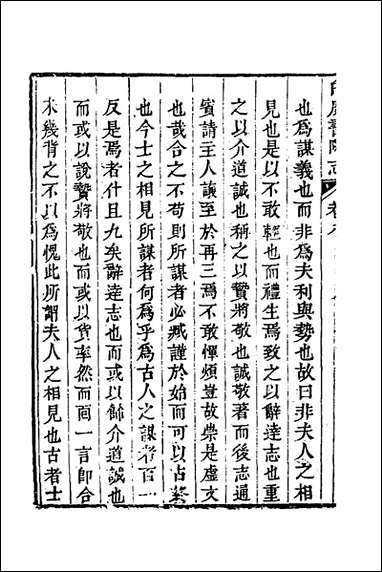 白鹿書院志 卷
也為謀義也而非為夫利與勢也故曰非夫人之相
見也是以不敢輕也而禮生焉致之以辭達志也重
之以介道誠也稱之以贄將敬也誠敬著而後志通
賓請主人議至於再三焉不敢憚煩豈故崇是虛文
也哉合之不苟則所謀者必臧謹於始而可以占終
也今士之相見所謀者何為乎為古人之謀者百一
反是焉者什且九矣辭達志也而或以餙介道誠也
而或以說贄將敬也而或以貨率然而面一言即合
未幾背之不以為愧此所謂夫人之相見也古者士